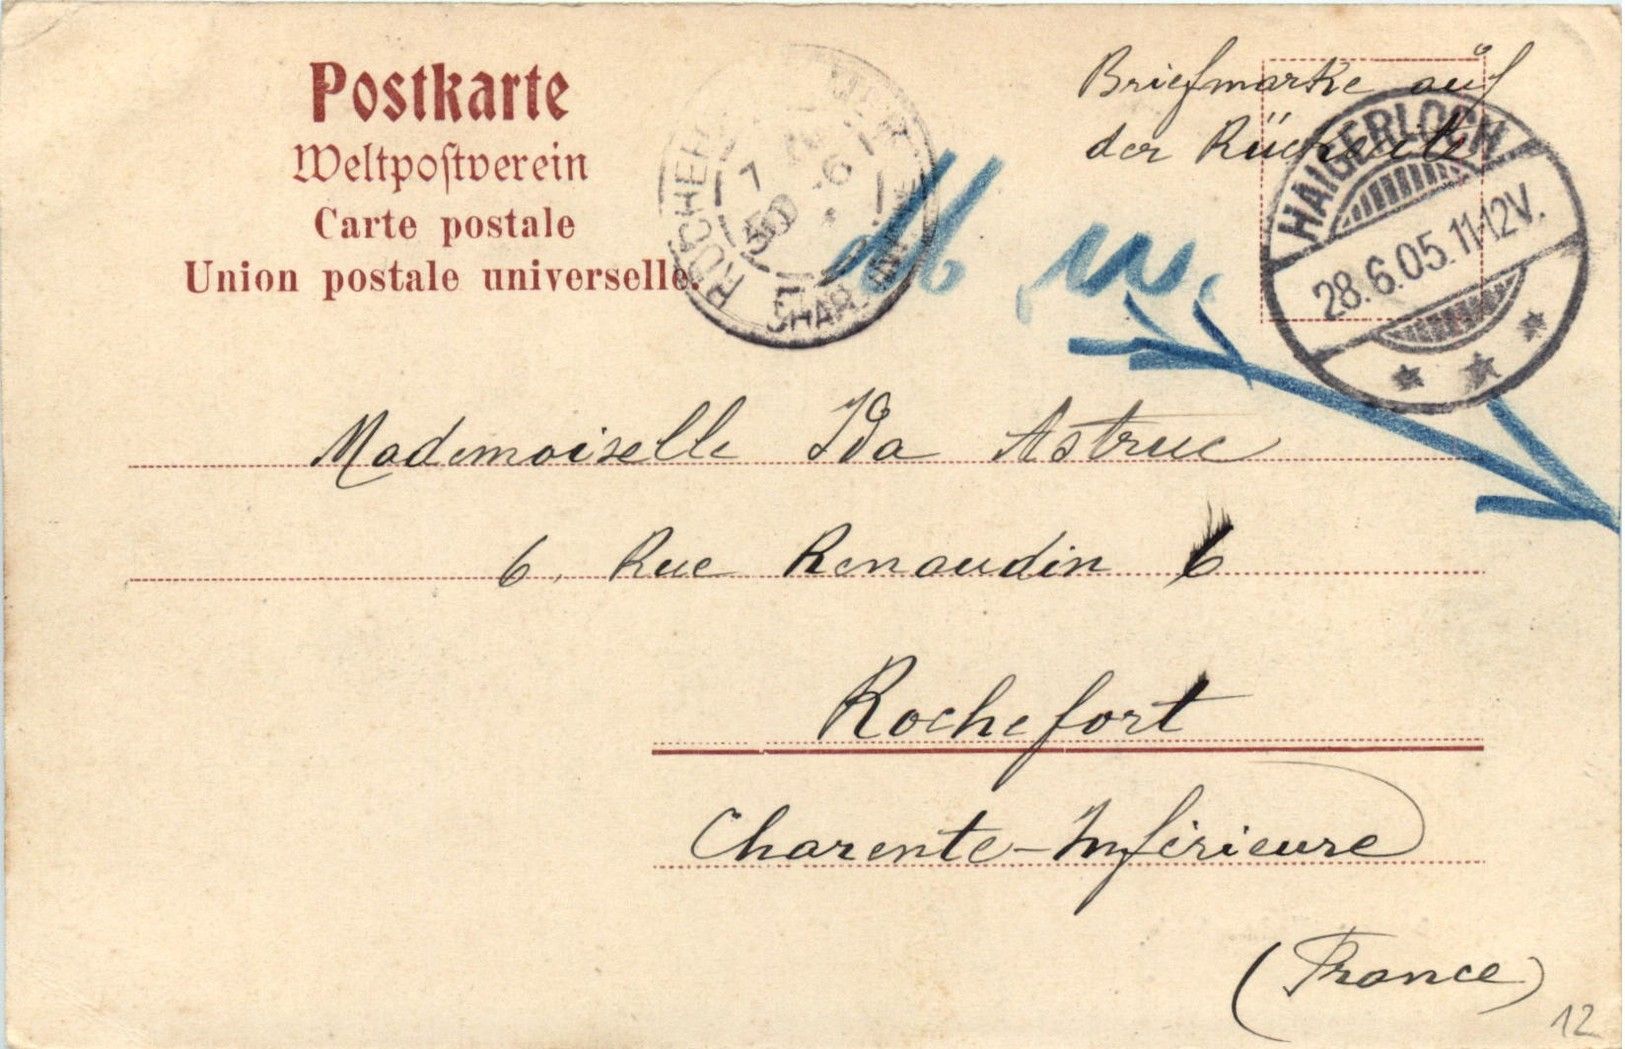 Postkarte
Weltpostverein
Carte postale
Union postale universelle.
Briefmarke auf
der Rückseite
HAIGERLOCH
28.6.05.11-12V.
Mademoiselle Ida Astruc
6, Rue Renaudin 6
Rochefort
Charente-Inférieure
(France)
12